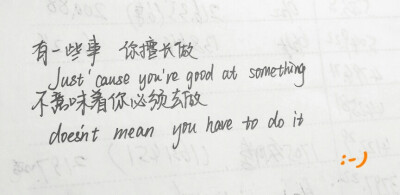 有一些事 你擅长做
Just 'cause you're good at something
不意味着你必须去做
doesn't mean you have to do it
:-)